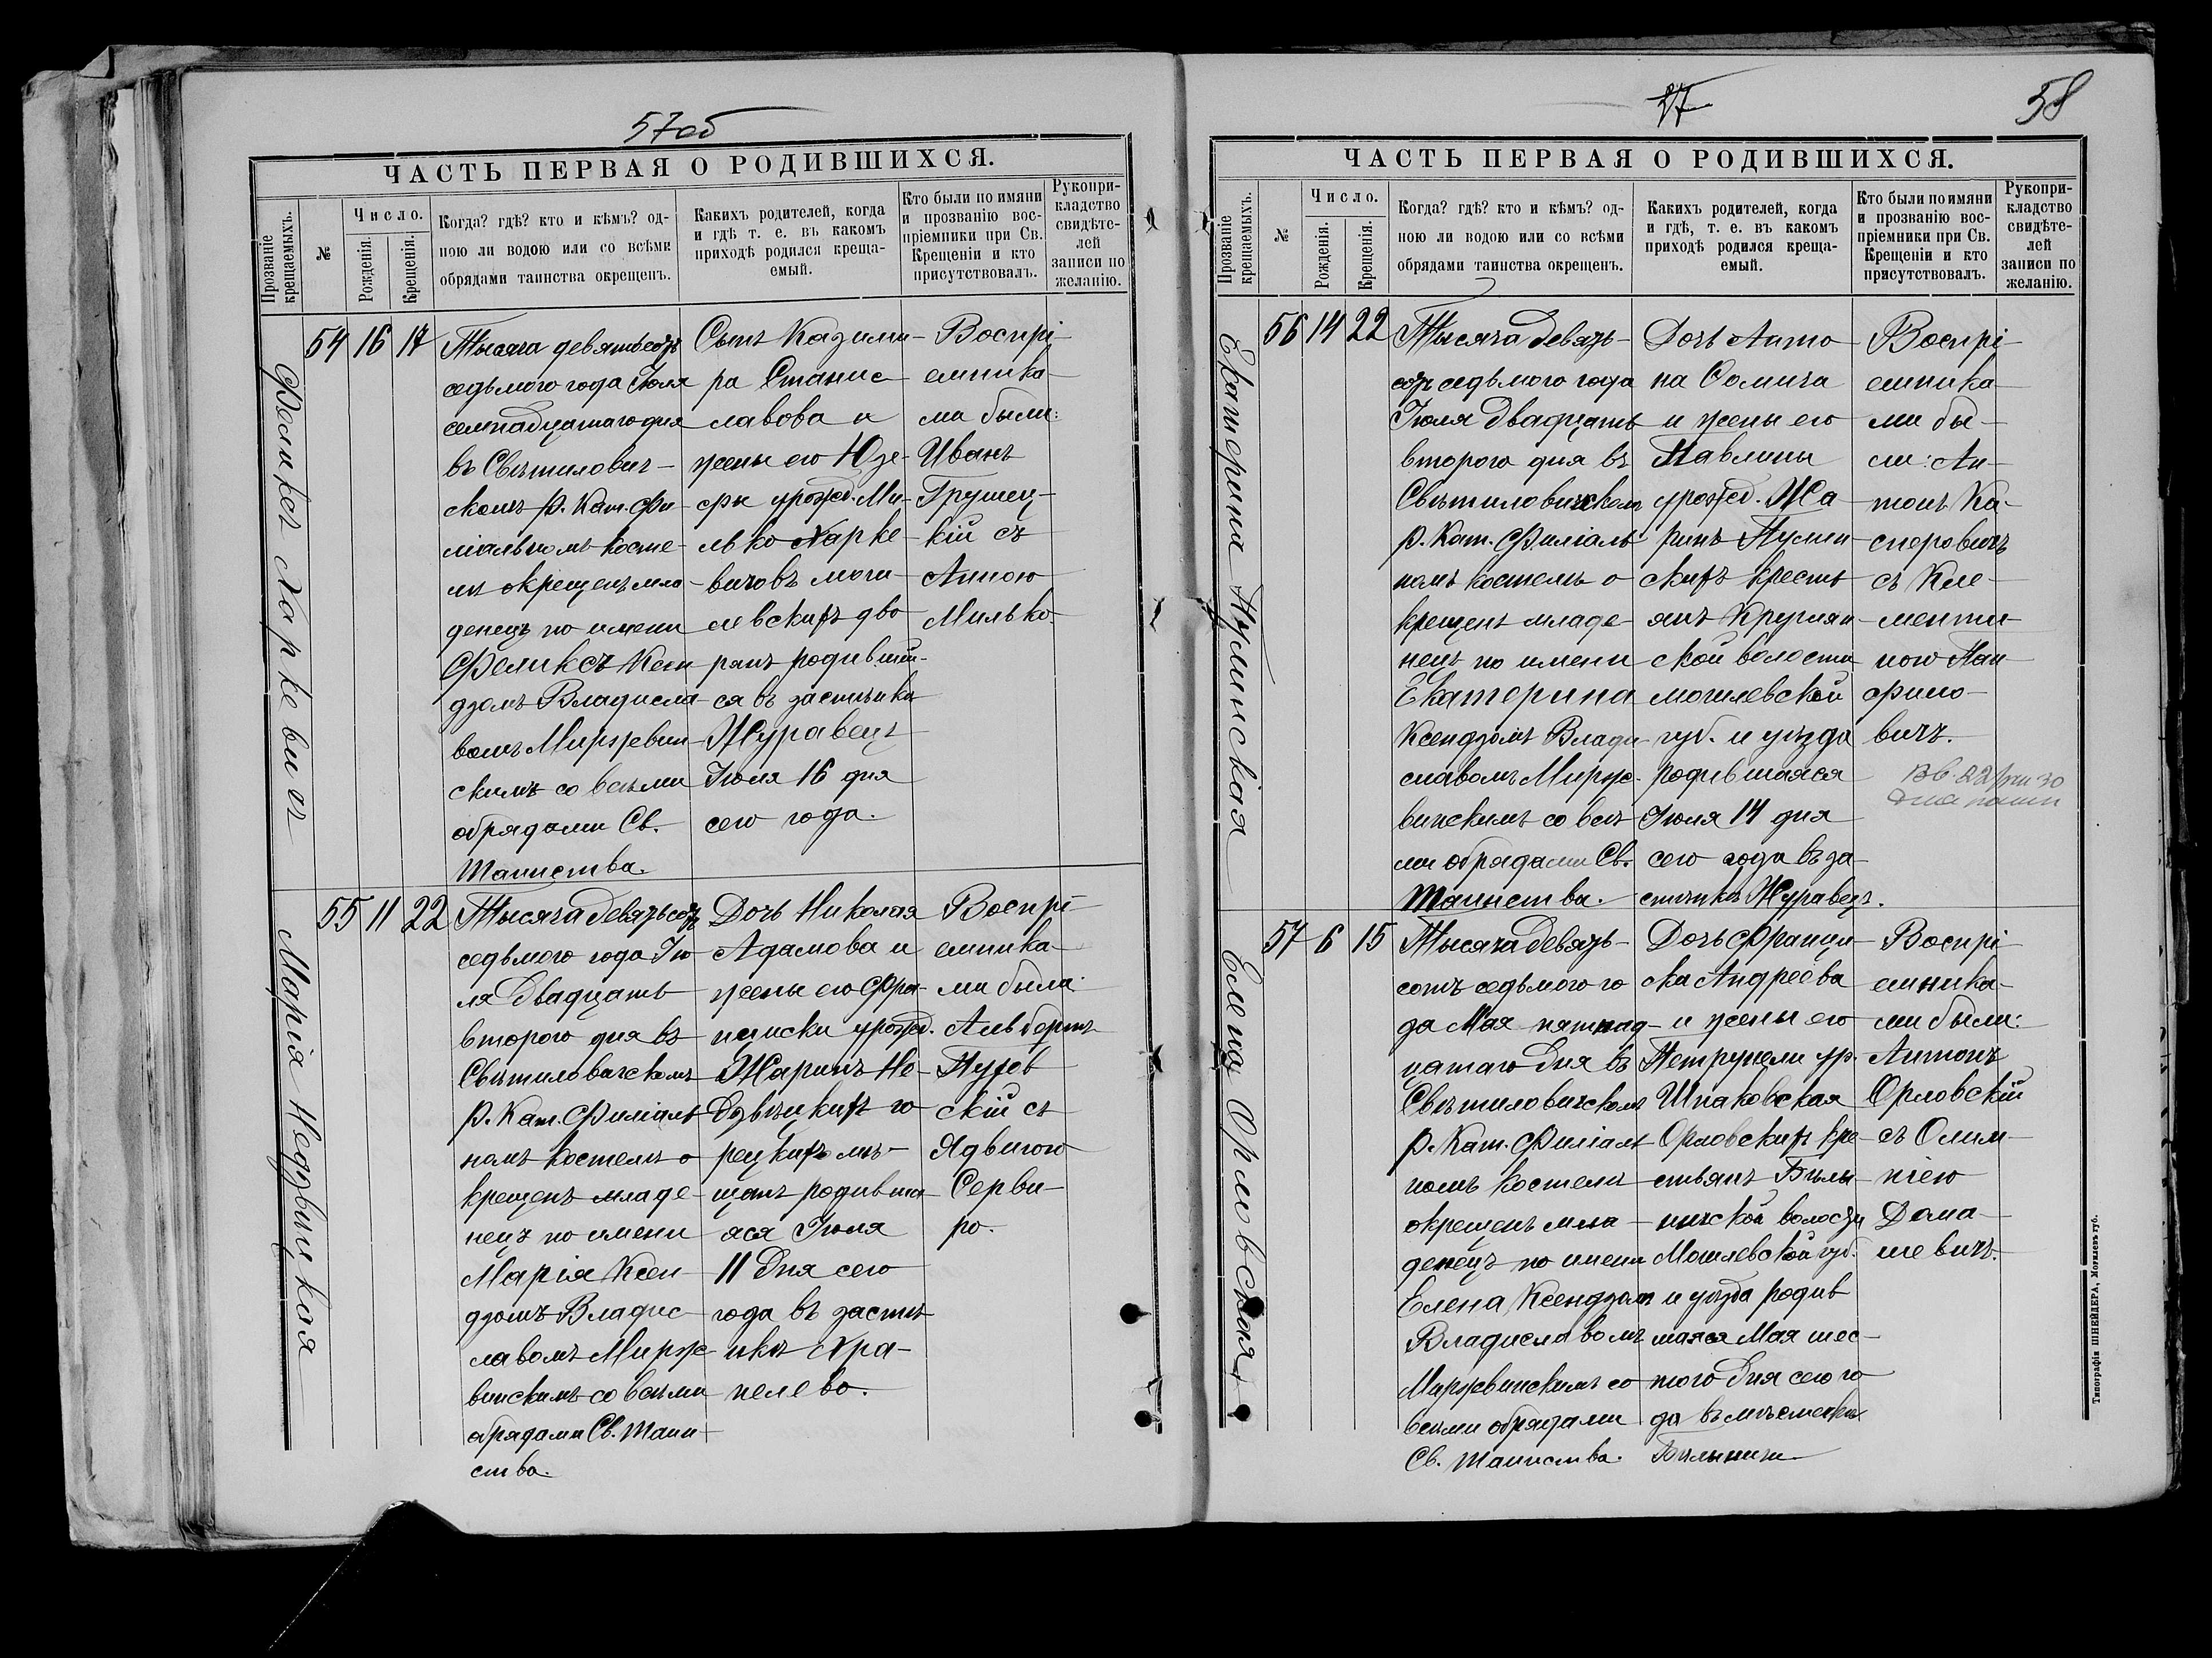 57об
ЧАСТЬ ПЕРВАЯ О РОДИВШИХСЯ.
Прозваніе крещаемыхъ.
№
Число.
Рожденія.
Крещенія.
Когда? гдѣ? кто и кѣмъ? од-
ною ли водою или со всѣми
обрядами таинства окрещенъ.
Какихъ родителей, когда
и гдѣ т. е. въ какомъ
приходѣ родился креща-
емый.
Кто были по имяни
и прозванію вос-
пріемники при Св.
Крещеніи и кто
присутствовалъ.
Рукопри-
кладство
свидѣте-
лей
записи по
желанію.
Феликсъ Харкевичъ
54 16 17
Тысяча девятьсотъ
седьмого года Іюля
семнадцатаго дня
въ Свѣтилович-
скомъ р. Кат. Фи-
ліальномъ косте-
лѣ окрещенъ мла-
денецъ по имени
Феликсъ Ксен
дзомъ Владисла-
вомъ Миржвин-
скимъ со всѣми
обрядами Св.
Таинства.
Сынъ Казими-
ра Станис-
лавова и
жены его Юзе-
фы урожд. Ми-
лько Харке-
вичовъ моги-
левскихъ дво
рянъ родивші-
ся въ застѣнкѣ
Журавецъ
Іюля 16 дня
сего года.
Воспрі-
емника-
ми были:
Иванъ
Грушец-
кій съ
Анною
Милько.
Марія Недзвицкая
55 11 22
Тысяча девятьсотъ
седьмого года Ію-
ля двадцать
второго дня въ
Свѣтиловичскомъ
р. Кат. Филіаль-
номъ костелѣ о-
крещенъ младе-
нецъ по имени
Марія Ксен-
дзомъ Владис-
лавомъ Мирж-
винскимъ со всѣми
обрядами Св. Таин-
ства.
Дочь Николая
Адамова и
жены его Фра-
нциски урожд.
Жаринъ Не-
дзвѣцкихъ го
рецкихъ мѣ-
щанъ родивша-
яся Іюля
11 дня сего
года въ застѣ-
нкѣ Хра-
пелево.
Воспрі-
емника-
ми были:
Альбертъ
скій съ
Ядвигою
Серви-
ро.
58
ЧАСТЬ ПЕРВАЯ О РОДИВШИХСЯ.
Прозваніе крещаемыхъ.
№
Число.
Рожденія.
Крещенія.
Когда? гдѣ? кто и кѣмъ? од-
ною ли водою или со всѣми
обрядами таинства окрещенъ.
Какихъ родителей, когда
и гдѣ, т. е. въ какомъ
приходѣ родился креща-
емый.
Кто были по имяни
и прозванію вос-
пріемники при Св.
Крещеніи и кто
присутствовалъ.
Рукопри-
кладство
свидѣте-
лей
записи по
желанію.
Екатерина Пулинская
56 14 22
Тысяча девять-
сотъ седьмого года
Іюля двадцать
второго дня въ
Свѣтиловичскомъ
р. Кат. Филіаль-
номъ костелѣ о-
крещенъ младе-
нецъ по имени
Екатерина
Ксендзомъ Влади-
славомъ Мирж-
винскимъ со всѣ-
ми обрядами Св.
Таинства.
Дочь Анто-
на Фомича
и жены его
Павлины
урожд. Жа
ринъ Пулин
скихъ кресть
янъ Круглян-
ской волости
могилевской
губ. и уѣзда
родившаяся
Іюля 14 дня
сего года въ за-
стѣнкѣ Журавецъ.
Воспрі-
емника-
ми бы-
ли: Ан-
тонъ Ка-
сперовичъ
съ Кле-
менти-
ною Пан-
фило-
вичъ.
Елена Орловская
57 6 15
Тысяча девять-
сотъ седьмого го
да Мая пятнад-
цатаго дня въ
Свѣтиловичскомъ
р. Кат. Филіаль
номъ костелѣ
окрещенъ мла-
денецъ по имени
Елена Ксендзомъ
Владиславомъ
Миржвинскимъ со
всѣми обрядами
Св. Таинства.
Дочь Франци-
ска Андреева
и жены его
Петрунели ур.
Шпаковская
Орловскихъ кре-
стьянъ Бѣлы-
ничской волости
Могилевской губ.
и уѣзда родив
шаяся Мая шес-
того дня сего го
да въ мѣстечкѣ
Бѣлыничи
Воспрі-
емника-
ми были:
Антонъ
Орловскій
съ Олим-
піею
Дама-
шевичъ.
Типографія ШНЕЙДЕРА, Могилевъ губ.